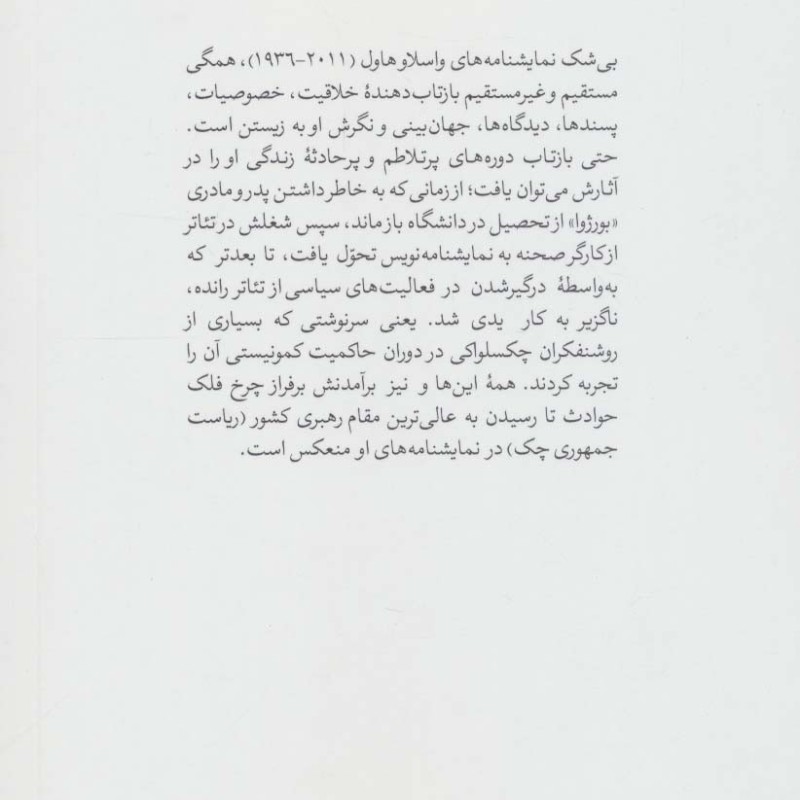 بی‌شک نمایشنامه‌های واسلاو هاول (۲۰۱۱-۱۹۳۶)، همگی
مستقیم و غیرمستقیم بازتاب‌دهندهٔ خلاقیت، خصوصیات،
پسندها، دیدگاه‌ها، جهان‌بینی و نگرش او به زیستن است.
حتی بازتاب دوره‌های پرتلاطم و پرحادثهٔ زندگی او را در
آثارش می‌توان یافت؛ از زمانی که به خاطر داشتن پدر و مادری
«بورژوا» از تحصیل در دانشگاه بازماند، سپس شغلش در تئاتر
از کارگر صحنه به نمایشنامه‌نویس تحوّل یافت، تا بعدتر که
به‌واسطهٔ درگیرشدن در فعالیت‌های سیاسی از تئاتر رانده،
ناگزیر به کار یدی شد. یعنی سرنوشتی که بسیاری از
روشنفکران چکسلواکی در دوران حاکمیت کمونیستی آن را
تجربه کردند. همهٔ این‌ها و نیز برآمدنش بر فراز چرخ فلک
حوادث تا رسیدن به عالی‌ترین مقام رهبری کشور (ریاست
جمهوری چک) در نمایشنامه‌های او منعکس است.